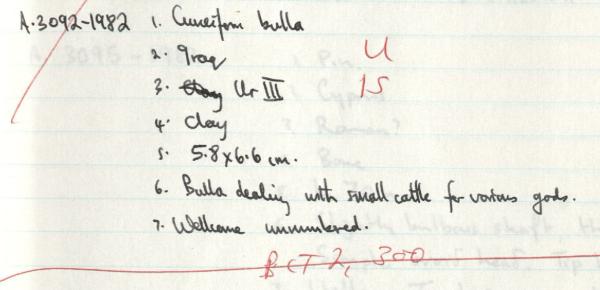 A.3092-1982 1. Cuneiform bulla
2. Iraq U
3. Ur III IS
4. Clay
5. 5.8 x 6.6 cm.
6. Bulla dealing with small cattle for various gods.
7. Wellcome unnumbered.
BCT 2, 300